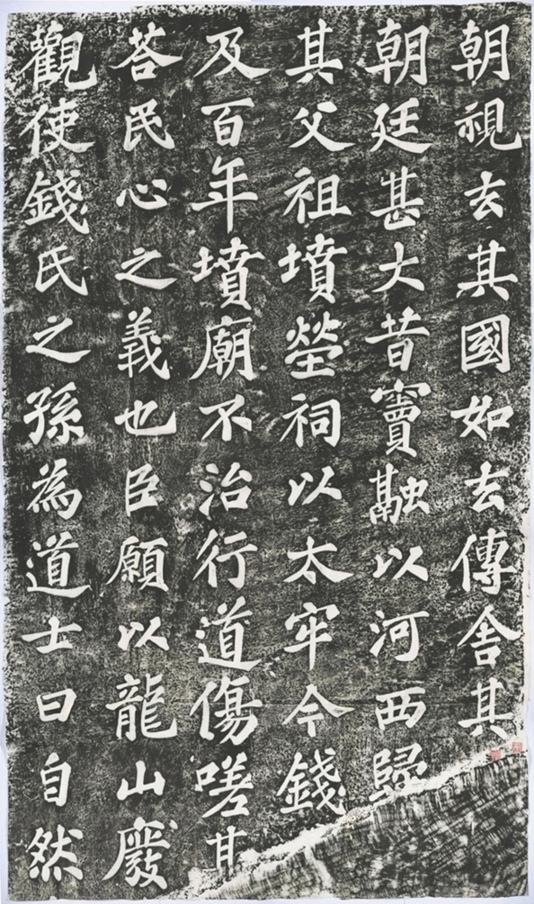 朝視去其國如去傳舍其
朝廷甚大昔竇融以河西歸
其父祖墳塋祠以太牢今錢
及百年墳廟不治行道傷嗟甘
荅民心之義也臣願以龍山廢
觀使錢氏之孫為道士曰自然